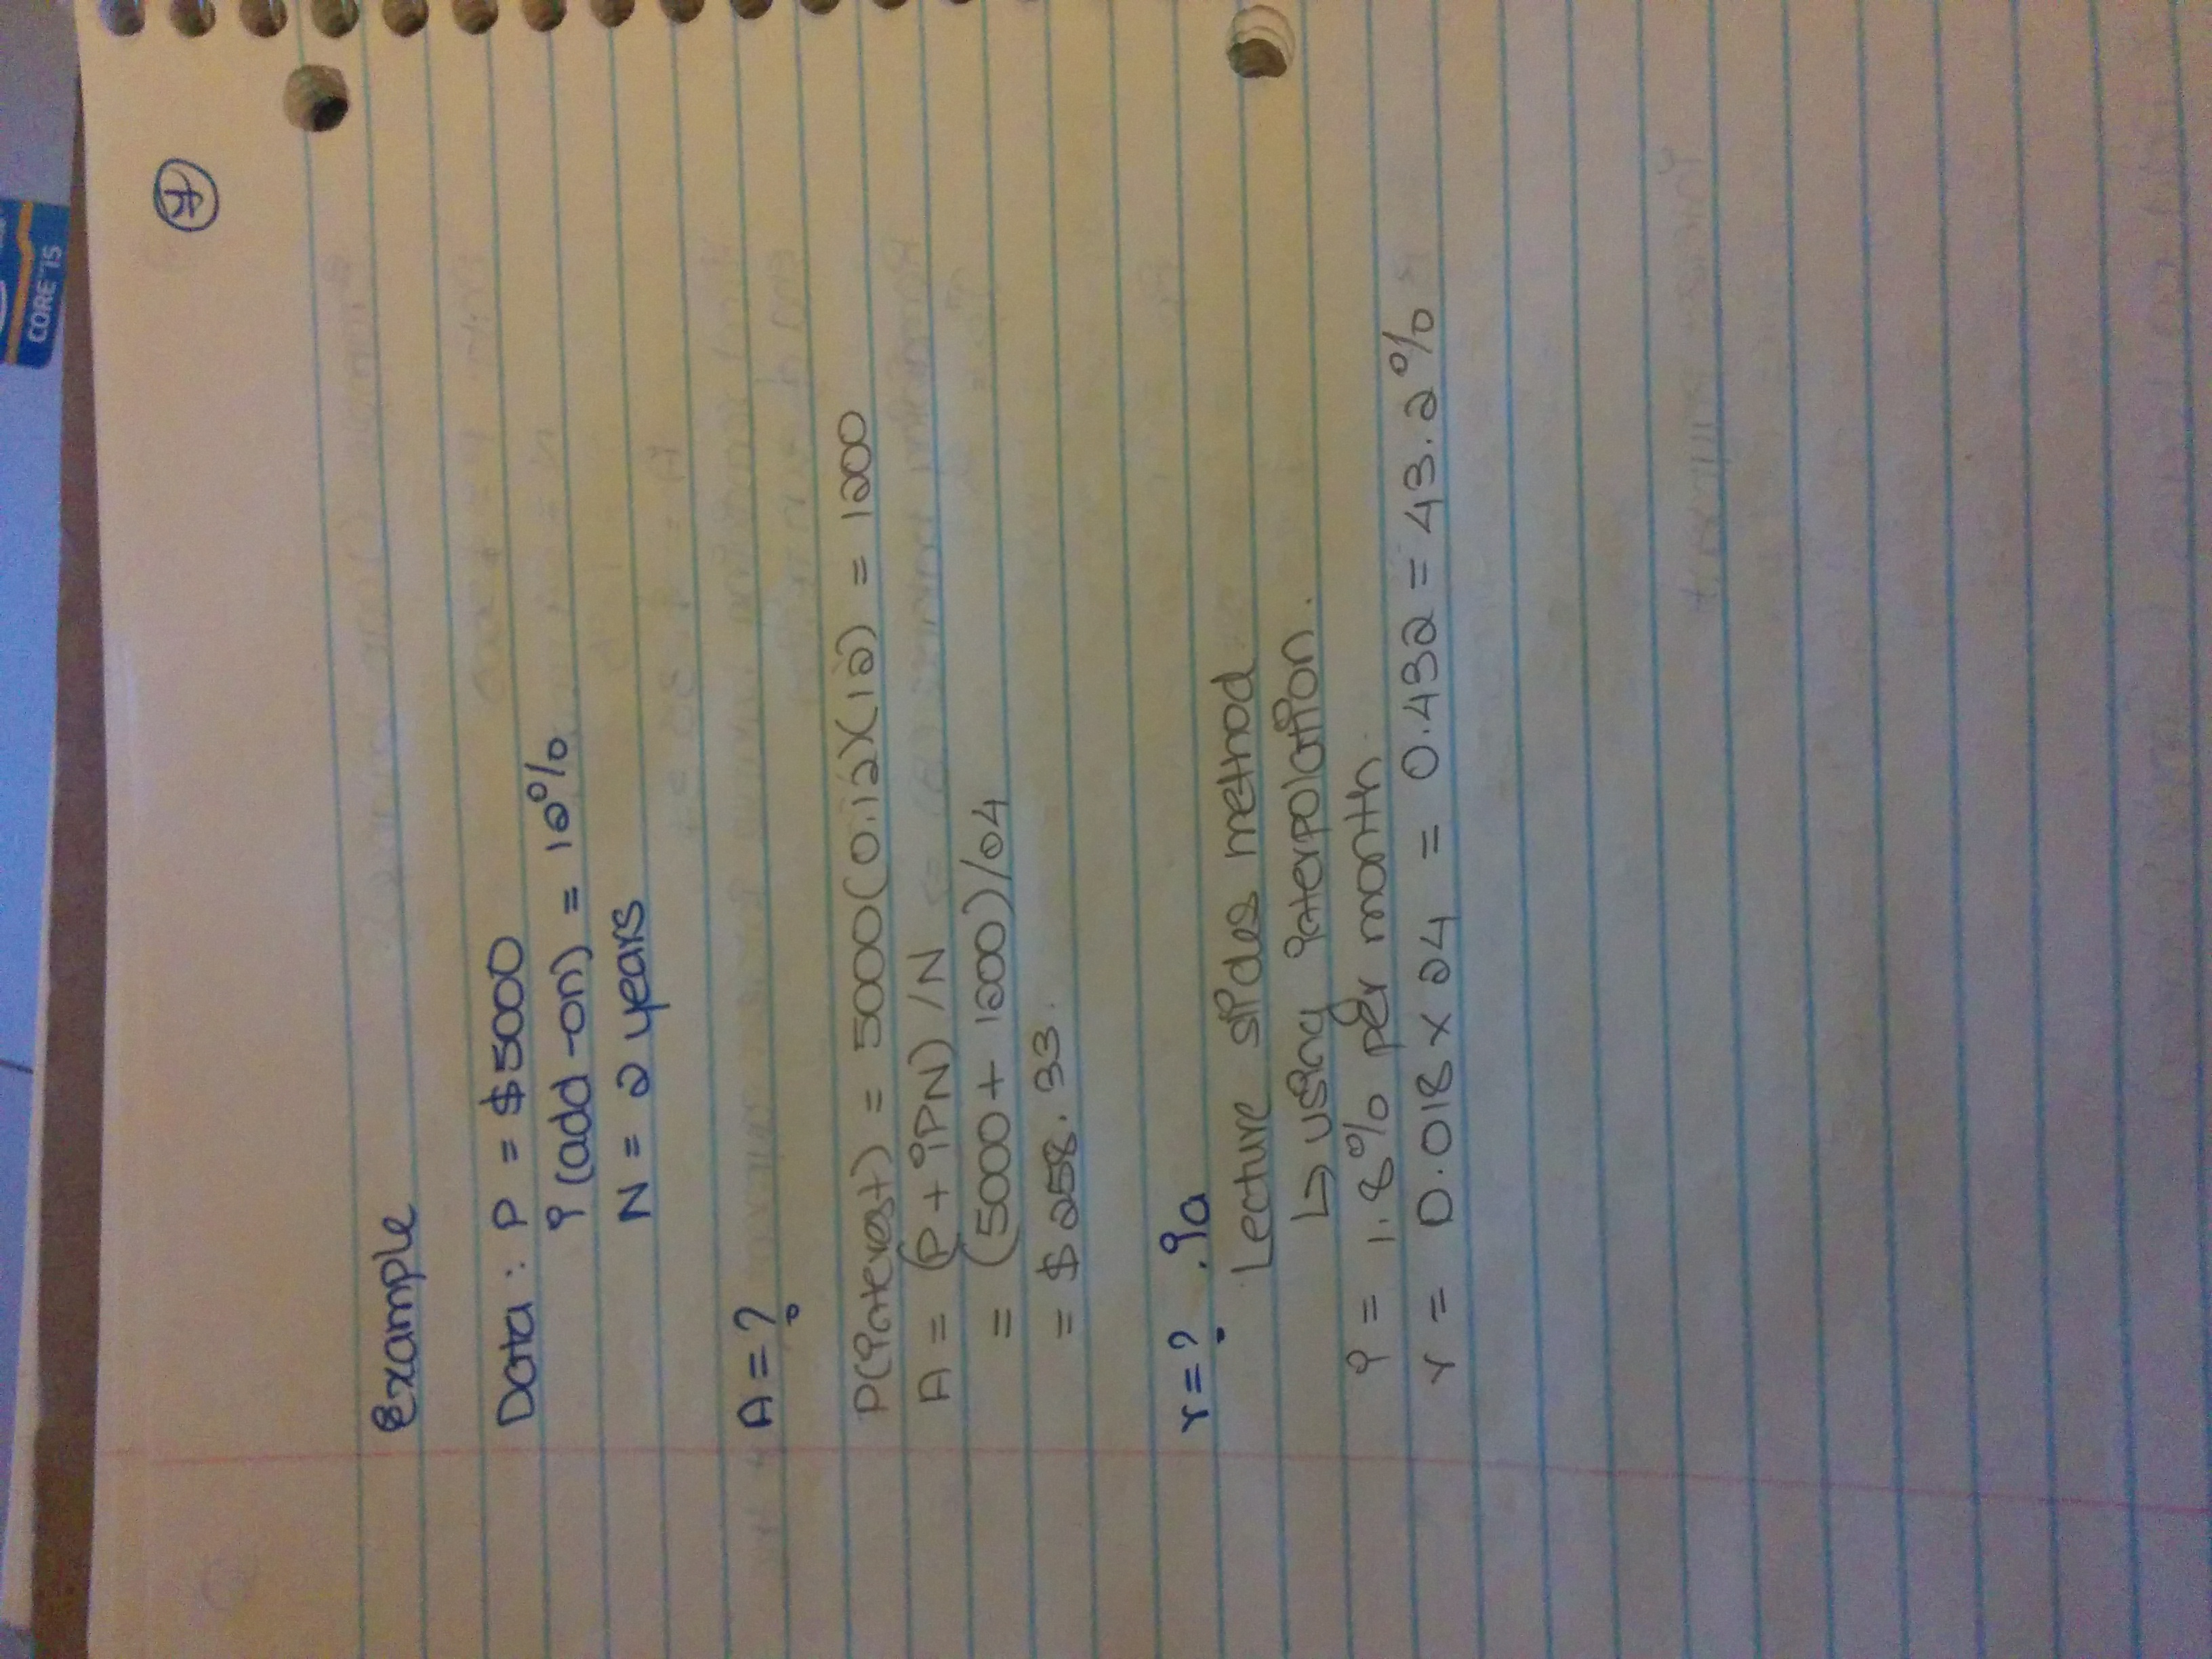 7
CORE i5
Example
Data : P = $5000
i (add-on) = 12%
N = 2 years
A = ?
P(interest) = 5000(0.12)(12) = 1200
A = (P + iPN) / N
= (5000 + 1200) / 24
= $ 258.33.
r = ? . ia
Lecture slides method
↳ using interpolation.
i = 1.8% per month.
r = 0.018 x 24 = 0.432 = 43.2%